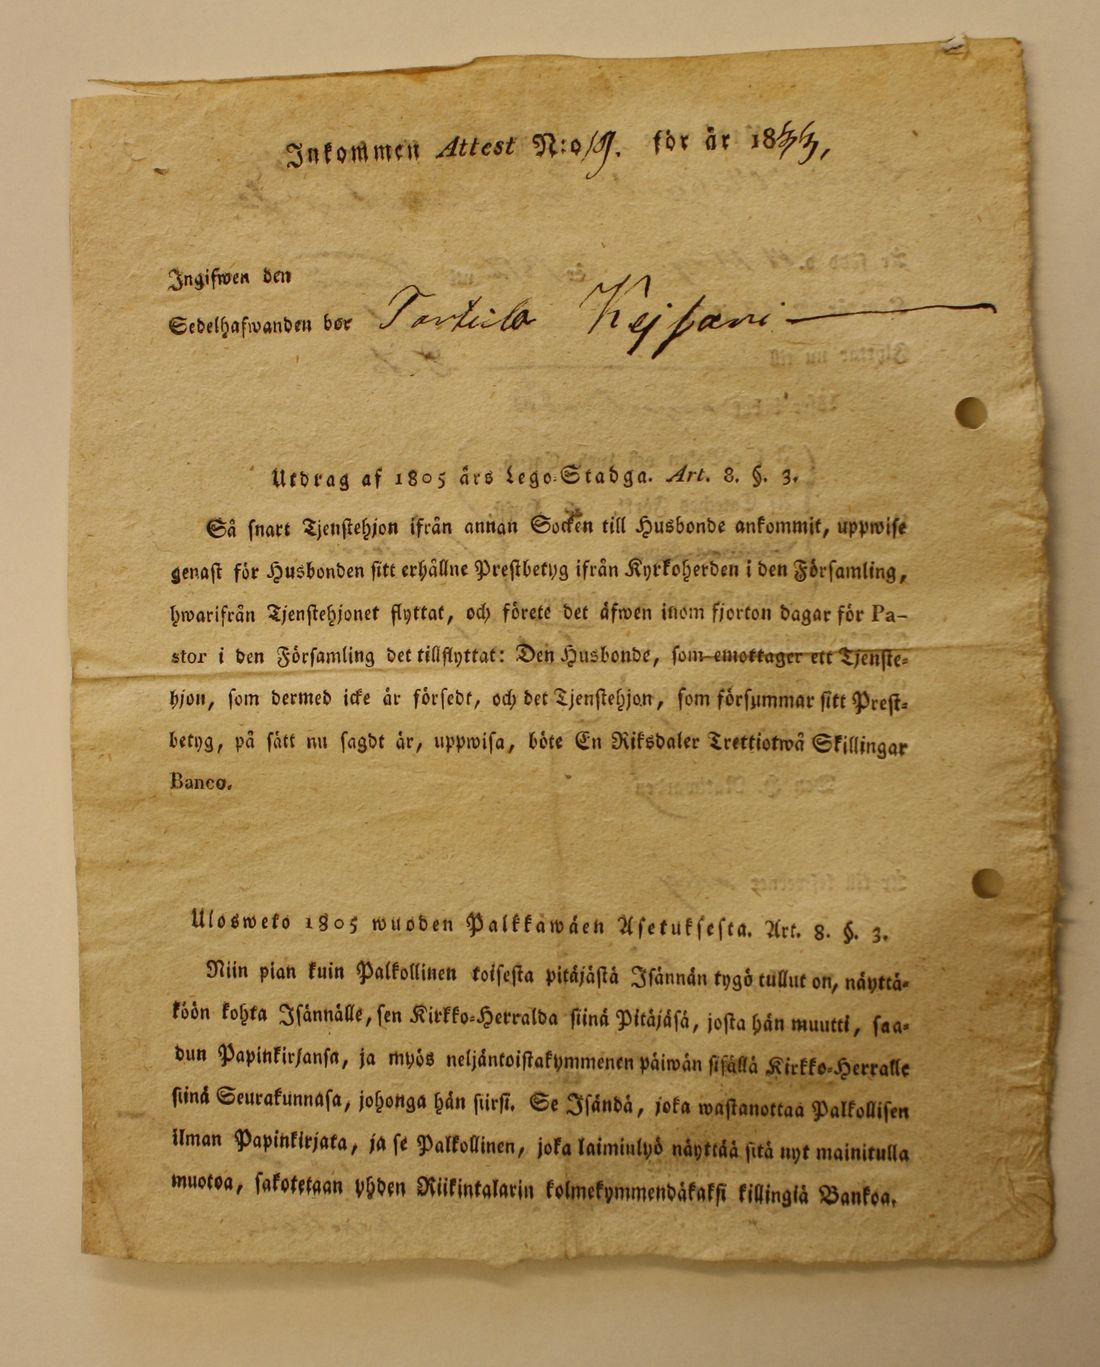 Inkommen Attest N:o 19. för år 1833,
Ingifwen den
Sedelhafwanden bor Tortula Kejsari
Utdrag af 1805 års Lego-Stadga. Art. 8. §. 3.
Så snart Tjenstehjon ifrån annan Socken till Husbonde ankommit, uppwise
genast för Husbonden sitt erhållne Prestbetyg ifrån Kyrkoherden i den Församling,
hwarifrån Tjenstehjonet flyttat, och förete det äfwen inom fjorton dagar för Pa-
stor i den Församling det tillflyttat: Den Husbonde, som emottager ett Tjenste-
hjon, som dermed icke är försedt, och det Tjenstehjon, som försummar sitt Prest-
betyg, på sätt nu sagdt är, uppwisa, böte En Riksdaler Trettiotwå Skillingar
Banco.
Ulosweto 1805 wuoden Palkkawäen Asetuksesta. Art. 8. §. 3.
Niin pian kuin Palkollinen toisesta pitäjästä Isännän tygö tullut on, näyttä-
köön kohta Isännälle, sen Kirkko-Herralda siinä Pitäjäsä, josta hän muutti, saa-
dun Papinkirjansa, ja myös neljäntoistakymmenen päiwän sisällä Kirkko-Herralle
siinä Seurakunnasa, johonga hän siirsi. Se Isändä, joka wastanottaa Palkollisen
ilman Papinkirjata, ja se Palkollinen, joka laimiulyö näyttää sitä nyt mainitulla
muotoa, sakotetaan yhden Riikintalarin kolmekymmendäkaksi killingiä Bankoa.